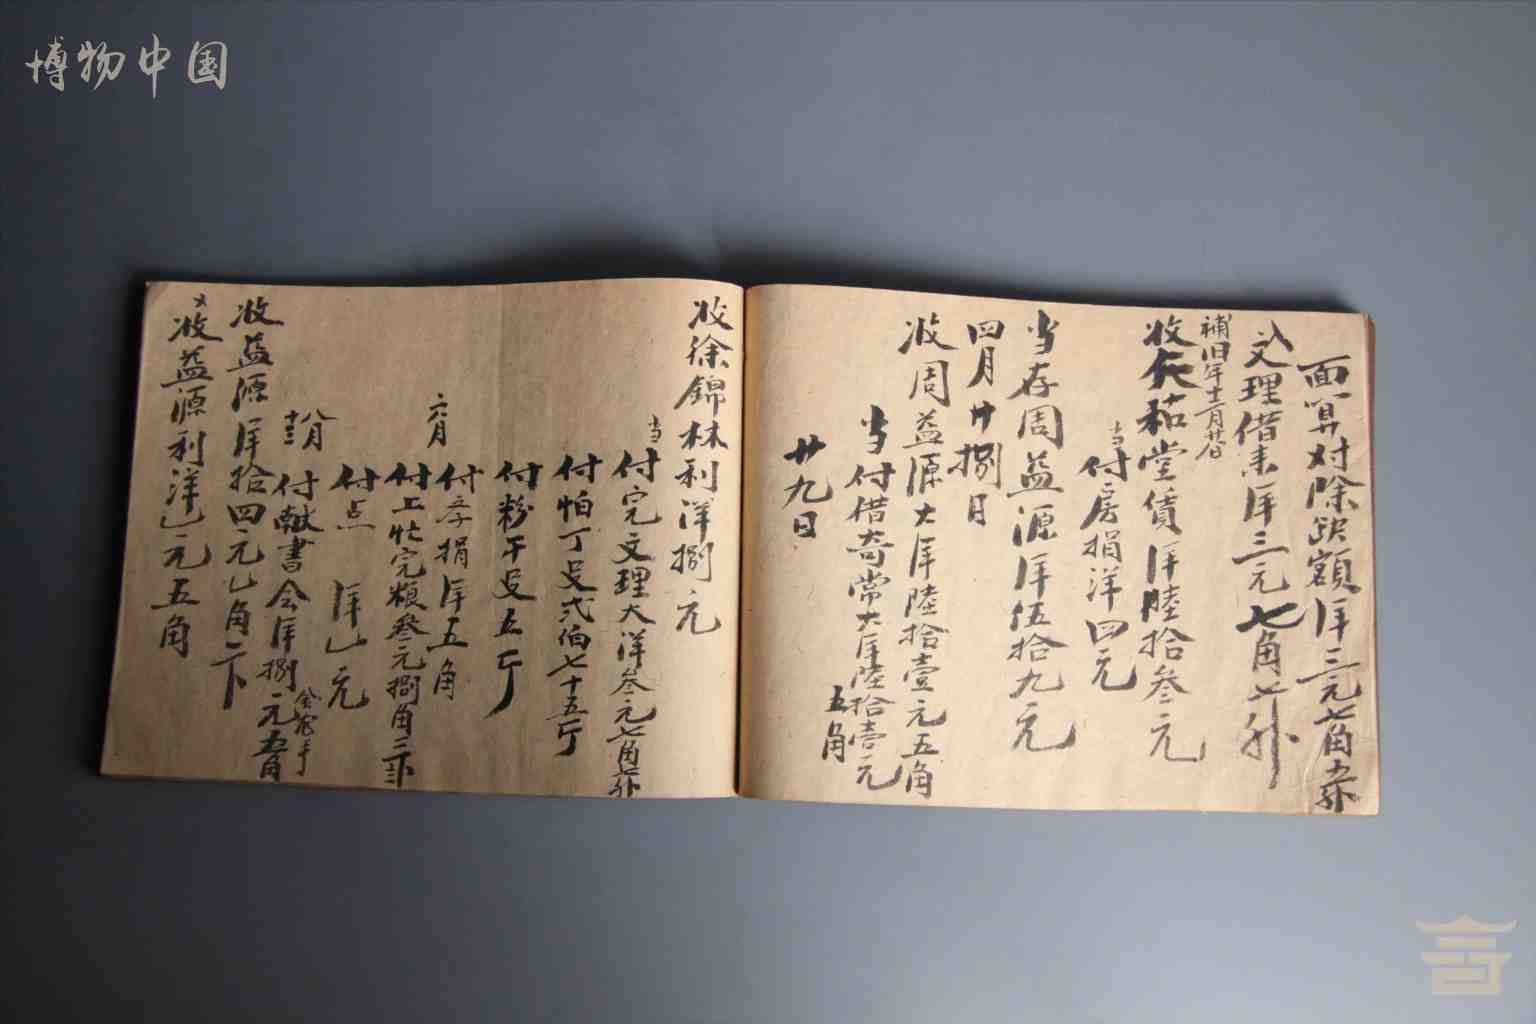 博物中国
面算对除跌額洋三元七角六分
又文理借来洋三元七角七分
補旧年十二月廿八日
收仁秸堂債洋陸拾叁元
当付房捐洋四元
当存周益源洋伍拾九元
四月廿捌日
收周益源大洋陸拾壹元五角
当付借奇常大洋陸拾壹元五角
廿九日
收徐錦林利洋捌元
当付完文理大洋叁元七角
付怕丁足弍伯七十五斤
付粉干足五斤
六月
付学捐洋五角
付上忙完粮叁元捌角三分
付点 洋乚元
八月
十三
付献書会洋捌元五角
收益源洋拾四元乚角二下
收益源利洋乚元五角